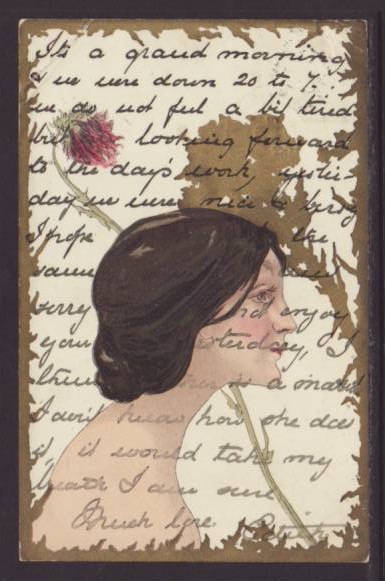 It's a grand morning
& we were down 20 to 7.
we do not feel a bit tired
but looking forward
to the day's work, yester-
day we were nice & busy
I hope the
same
sorry enjoy
your yesterday, I
think is a
I don't know how she does
it it would take my
breath I am sure
Much love